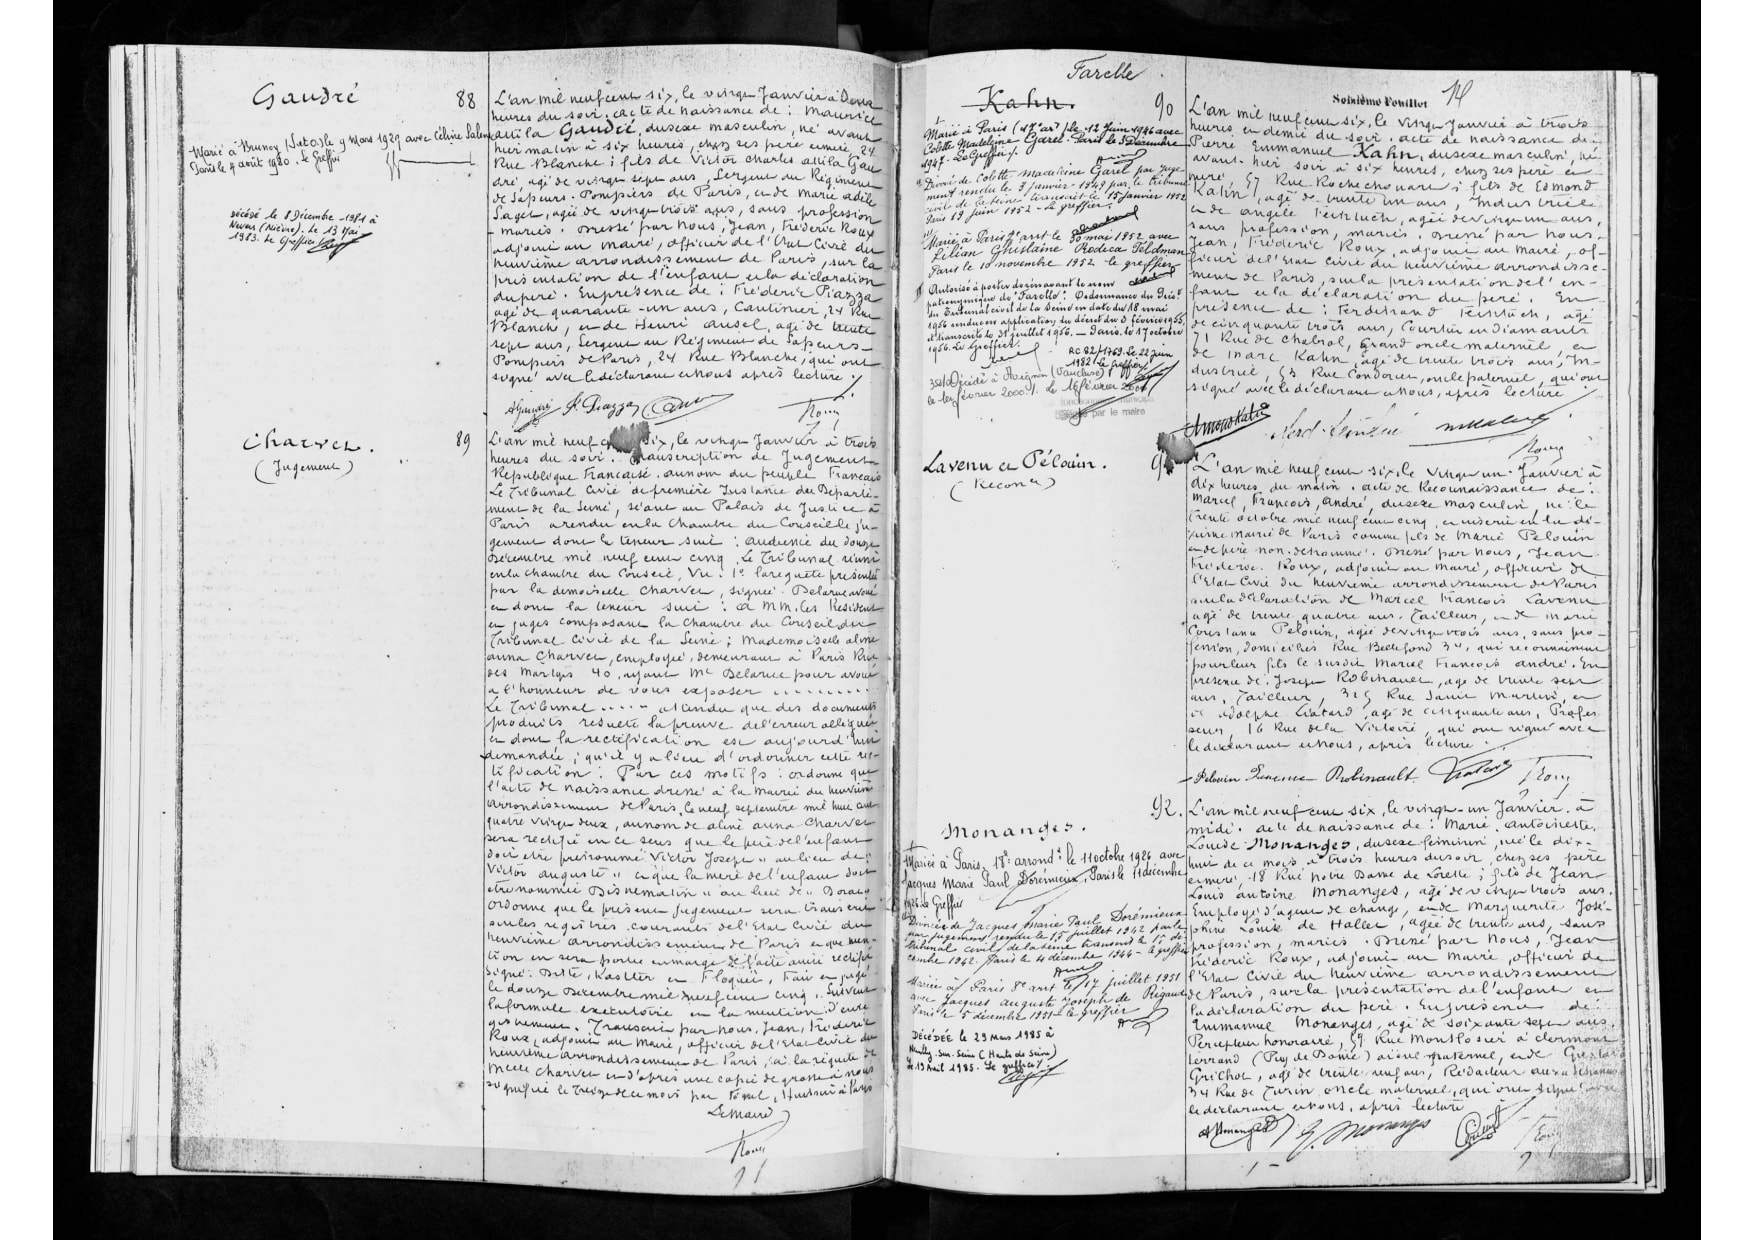 Gaudré
88
Marié à Brunoy (S et O) le 9 Mars 1929 avec Céline Salen
Paris le 4 août 1930. Le Greffier
Décédé le 8 Décembre 1981 à
Nevers (Nièvre). Le 13 Mai
1983. Le Greffier
L'an mil neuf cent six, le vingt Janvier à Deux
heures du soir. acte de naissance de : Maurice
attila Gaudré, du sexe masculin, né avant
hier matin à six heures, chez ses père et mère, 24
Rue Blanche ; fils de Victor Charles attila Gau
dré, agé de vingt sept ans, Sergent au Régiment
de Sapeurs-Pompiers de Paris, et de Marie adèle
Saget, agée de vingt trois ans, sans profession
- mariés. Dressé par Nous, Jean, Frédéric Roux
adjoint au Maire, officier de l'Etat Civil du
neuvième arrondissement de Paris, sur la
présentation de l'enfant et la déclaration
du père. En présence de : Frédéric Piazza
agé de quarante-un ans, Cantinier, 24 Rue
Blanche, et de Henri ausel, agé de trente
sept ans, Sergent au Régiment de Sapeurs-
Pompiers de Paris, 24 Rue Blanche, qui ont
signé avec le déclarant et Nous après lecture.
AGaudré F. Piazza
Roux
Charvet.
(Jugement)
89
L'an mil neuf six, le vingt Janvier à trois
heures du soir. Transcription de Jugement
République Française. au nom du peuple Français
Le Tribunal Civil de première Instance du Départe-
ment de la Seine, séant au Palais de Justice à
Paris a rendu en la Chambre du Conseil le ju-
gement dont la teneur suit : audience du douze
Décembre mil neuf cent cinq. Le Tribunal réuni
en la Chambre du Conseil, Vu : 1° la requête présentée
par la demoiselle Charvet, signée. Delarue avoué
et dont la teneur suit : a MM. les Président
et juges composant la Chambre du Conseil du
Tribunal Civil de la Seine ; Mademoiselle aline
anna Charvet, employée, demeurant à Paris Rue
des Martyrs 40. ayant Me Delarue pour avoué
a l'honneur de vous exposer .........
Le Tribunal ..... attendu que des documents
produits résulte la preuve de l'erreur alléguée
et dont la rectification est aujourd'hui
demandée ; qu'il y a lieu d'ordonner cette rec-
tification : Par ces motifs : ordonne que
l'acte de naissance dressé à la Mairie du neuvième
arrondissement de Paris, le neuf septembre mil huit cent
quatre vingt deux, au nom de aline anna Charvet
sera rectifié en ce sens que le père de l'enfant
doit être prénommé Victor Joseph " au lieu de "
Victor auguste " et que la mère de l'enfant doit
être nommée Disnematin " au lieu de "
ordonne que le présent jugement sera transcrit
sur les registres courants de l'Etat Civil du
neuvième arrondissement de Paris et que men-
tion en sera portée en marge de l'acte ainsi rectifié
Signé : Ditte, Kastler et Floquet, Fait et jugé
le douze Décembre mil neuf cent cinq. Suivent
la formule exécutoire et la mention d'enre
gistrement. Transcrit par nous, Jean, Frédéric
Roux, adjoint au Maire, officier de l'Etat Civil du
neuvième arrondissement de Paris, à la requête de
Melle Charvet et d'après une copie de grosse à nous
signifiée le Treize de ce mois par Huissier à Paris
Le Maire
Roux
Farelle
Kahn.
90
Marié à Paris (17e arrt) le 12 Juin 1946 avec
Colette Madeleine Garet. Paris le 3 Décembre
1947. Le Greffier
Divorcé de Colette Madeleine Garet par juge
ment rendu le 9 janvier 1949 par le tribunal
civil de la Seine transcrit le 15 janvier 1952
Paris 19 juin 1952 - le greffier
Marié à Paris arrt le 30 mai 1952 avec
Lilian Ghislaine Rodica Feldman
Paris le 10 novembre 1952 - le greffier
Autorisé à porter dorénavant le nom
patronymique de "Farelle". Ordonnance du Présdt
du Tribunal civil de la Seine en date du 18 mai
1956 rendue en application du décret du 3 février 1955,
transcrite le 31 juillet 1956. - Paris, le 17 octobre
1956. Le Greffier.
RC 82/1769. Le 22 juin
1982. Le Greffier
Décédé à Avignon (Vaucluse)
le 1er février 2000. Le 16 février 2000
par le maire
Soixième Feuillet
L'an mil neuf cent six, le vingt Janvier à trois
heures et demie du soir. acte de naissance de :
Pierre Emmanuel Kahn, du sexe masculin, né
avant-hier soir à six heures, chez ses père et
mère, 57 Rue Rochechouart ; fils de Edmond
Kahn, agé de trente un ans, Industriel
et de angèle Feintuch, agée de vingt un ans,
sans profession, mariés. Dressé par Nous,
Jean, Frédéric Roux, adjoint au Maire, of-
ficier de l'Etat Civil du neuvième arrondisse-
ment de Paris, sur la présentation de l'en-
fant et la déclaration du père. En
présence de : Ferdinand Feintuch, agé
de cinquante trois ans, Courtier en Diamants
71 Rue de Chabrol, grand oncle maternel, et
de Marc Kahn, agé de trente trois ans, In-
dustriel, 53 Rue Condorcet, oncle paternel, qui ont
signé avec le déclarant et Nous, après lecture
Roux
Lavenu et Pélouin.
(Reconce)
L'an mil neuf cent six, le vingt un Janvier à
dix heures du matin. acte de Reconnaissance de :
Marcel, François, André, du sexe masculin, né le
trente octobre mil neuf cent cinq, et inscrit en la di-
xième mairie de Paris comme fils de Marie Pelouin
et de père non dénommé. Dressé par Nous, Jean
Frédéric Roux, adjoint au Maire, officier de
l'Etat Civil du neuvième arrondissement de Paris
sur la déclaration de Marcel François Lavenu
agé de trente quatre ans, Tailleur, et de Marie
Constana Pelouin, agée de vingt trois ans, sans pro-
fession, domiciliés Rue Bellefond 34, qui reconnaissent
pour leur fils le susdit Marcel François André. En
présence de : Joseph Robinault, agé de trente sept
ans, Tailleur, 325 Rue Saint Martin, et
de Adolphe Liatard, agé de cinquante ans, Profes
seur, 16 Rue de la Victoire, qui ont signé avec
le déclarant et Nous, après lecture.
Pelouin Lavenu Robinault Liatard Roux
92.
Monanges.
Mariée à Paris, 18e arrondt le 11 octobre 1926 avec
Jacques Marie Paul Dorémieux, Paris le 11 décembre
1926. Le Greffier
Divorcée de Jacques Marie Paul Dorémieux
par jugement rendu le 15 juillet 1942 par le
tribunal civil de la Seine transcrit le 15 dé-
cembre 1942. Paris le 4 décembre 1944 - le greffier
Mariée à Paris 8e arrt le 17 juillet 1951
avec Jacques Auguste Joseph de Rigaud
Paris le 5 décembre 1951 - le greffier
DÉCÉDÉE le 29 Mars 1985 à
Neuilly-sur-Seine (Hauts de Seine)
Le 19 Avril 1985. Le greffier
L'an mil neuf cent six, le vingt-un Janvier à
midi. acte de naissance de : Marie, Antoinette,
Louise Monanges, du sexe féminin, née le dix-
huit de ce mois à trois heures du soir, chez ses père
et mère, 18 Rue Notre Dame de Lorette ; fille de Jean
Louis Antoine Monanges, agé de vingt trois ans,
Employé d'agent de change, et de Marguerite José-
phine Louise de Haller, agée de trente ans, sans
profession, mariés. Dressé par Nous, Jean
Frédéric Roux, adjoint au Maire, officier de
l'Etat Civil du neuvième arrondissement
de Paris, sur la présentation de l'enfant et
la déclaration du père. En présence de :
Emmanuel Monanges, agé de soixante sept ans,
Percepteur honoraire, 59 Rue Montlosier à Clermont
Ferrand (Puy de Dôme) aïeul paternel, et de
Grilhot, agé de trente neuf ans, Rédacteur aux
34 Rue de Turin oncle maternel, qui ont signé avec
le déclarant et Nous, après lecture
AMonanges E. Monanges Roux